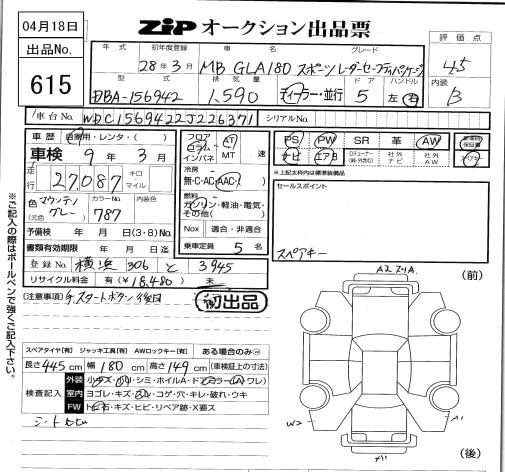 04月18日
出品No.
615
ZiP オークション出品票
年 式 初年度登録 車 名 グレード
28年3月 MB GLA180 スポーツ レーダーセーフティパッケージ
型 式 排 気 量 ド ア ハンドル
DBA-156942 1,590 ディーラー・並行 5 左・右
評 価 点
4.5
内装
B
車台No. WDC1569422J226371 シリアルNo.
車 歴 自家用・レンタ・( )
車検 9年 3月
走行 27,087 キロ マイル
色 (元色) マウンテングレー カラーNo. 787 内装色
予備検 年 月 日(3・8)No.
書類有効期限 年 月 日迄
登 録 No. 横浜 306 と 3945
リサイクル料金 有(¥18,480) 未
フロア コラム インパネ AT MT 速
冷房 無・C・AC・AAC
燃料 ガソリン・軽油・電気・その他( )
Nox 適合・非適合
乗車定員 5 名
PS PW SR 革 AW
ナビ エアB Dチューナー(純・外含む) 社外ナビ 社外AW
新車時保証書
*上記太枠内は標準装備品
セールスポイント
スペアキー
(注意事項)
初出品
スペアタイヤ[有] ジャッキ工具[有] AWロックキー[有] ある場合のみ○
長さ 445cm 幅 180cm 高さ 149cm (車検証上の寸法)
検査記入
外装 小キズ・凹・シミ・ホイルA・ドアミラー(A・ワレ)
室内 ヨゴレ・キズ・凹・コゲ・穴・キレ・破れ・ウキ
FW トビ石・キズ・ヒビ・リペア跡・X要ス
(前)
(後)
W2
A1
A1
※ご記入の際はボールペンで強くご記入下さい。